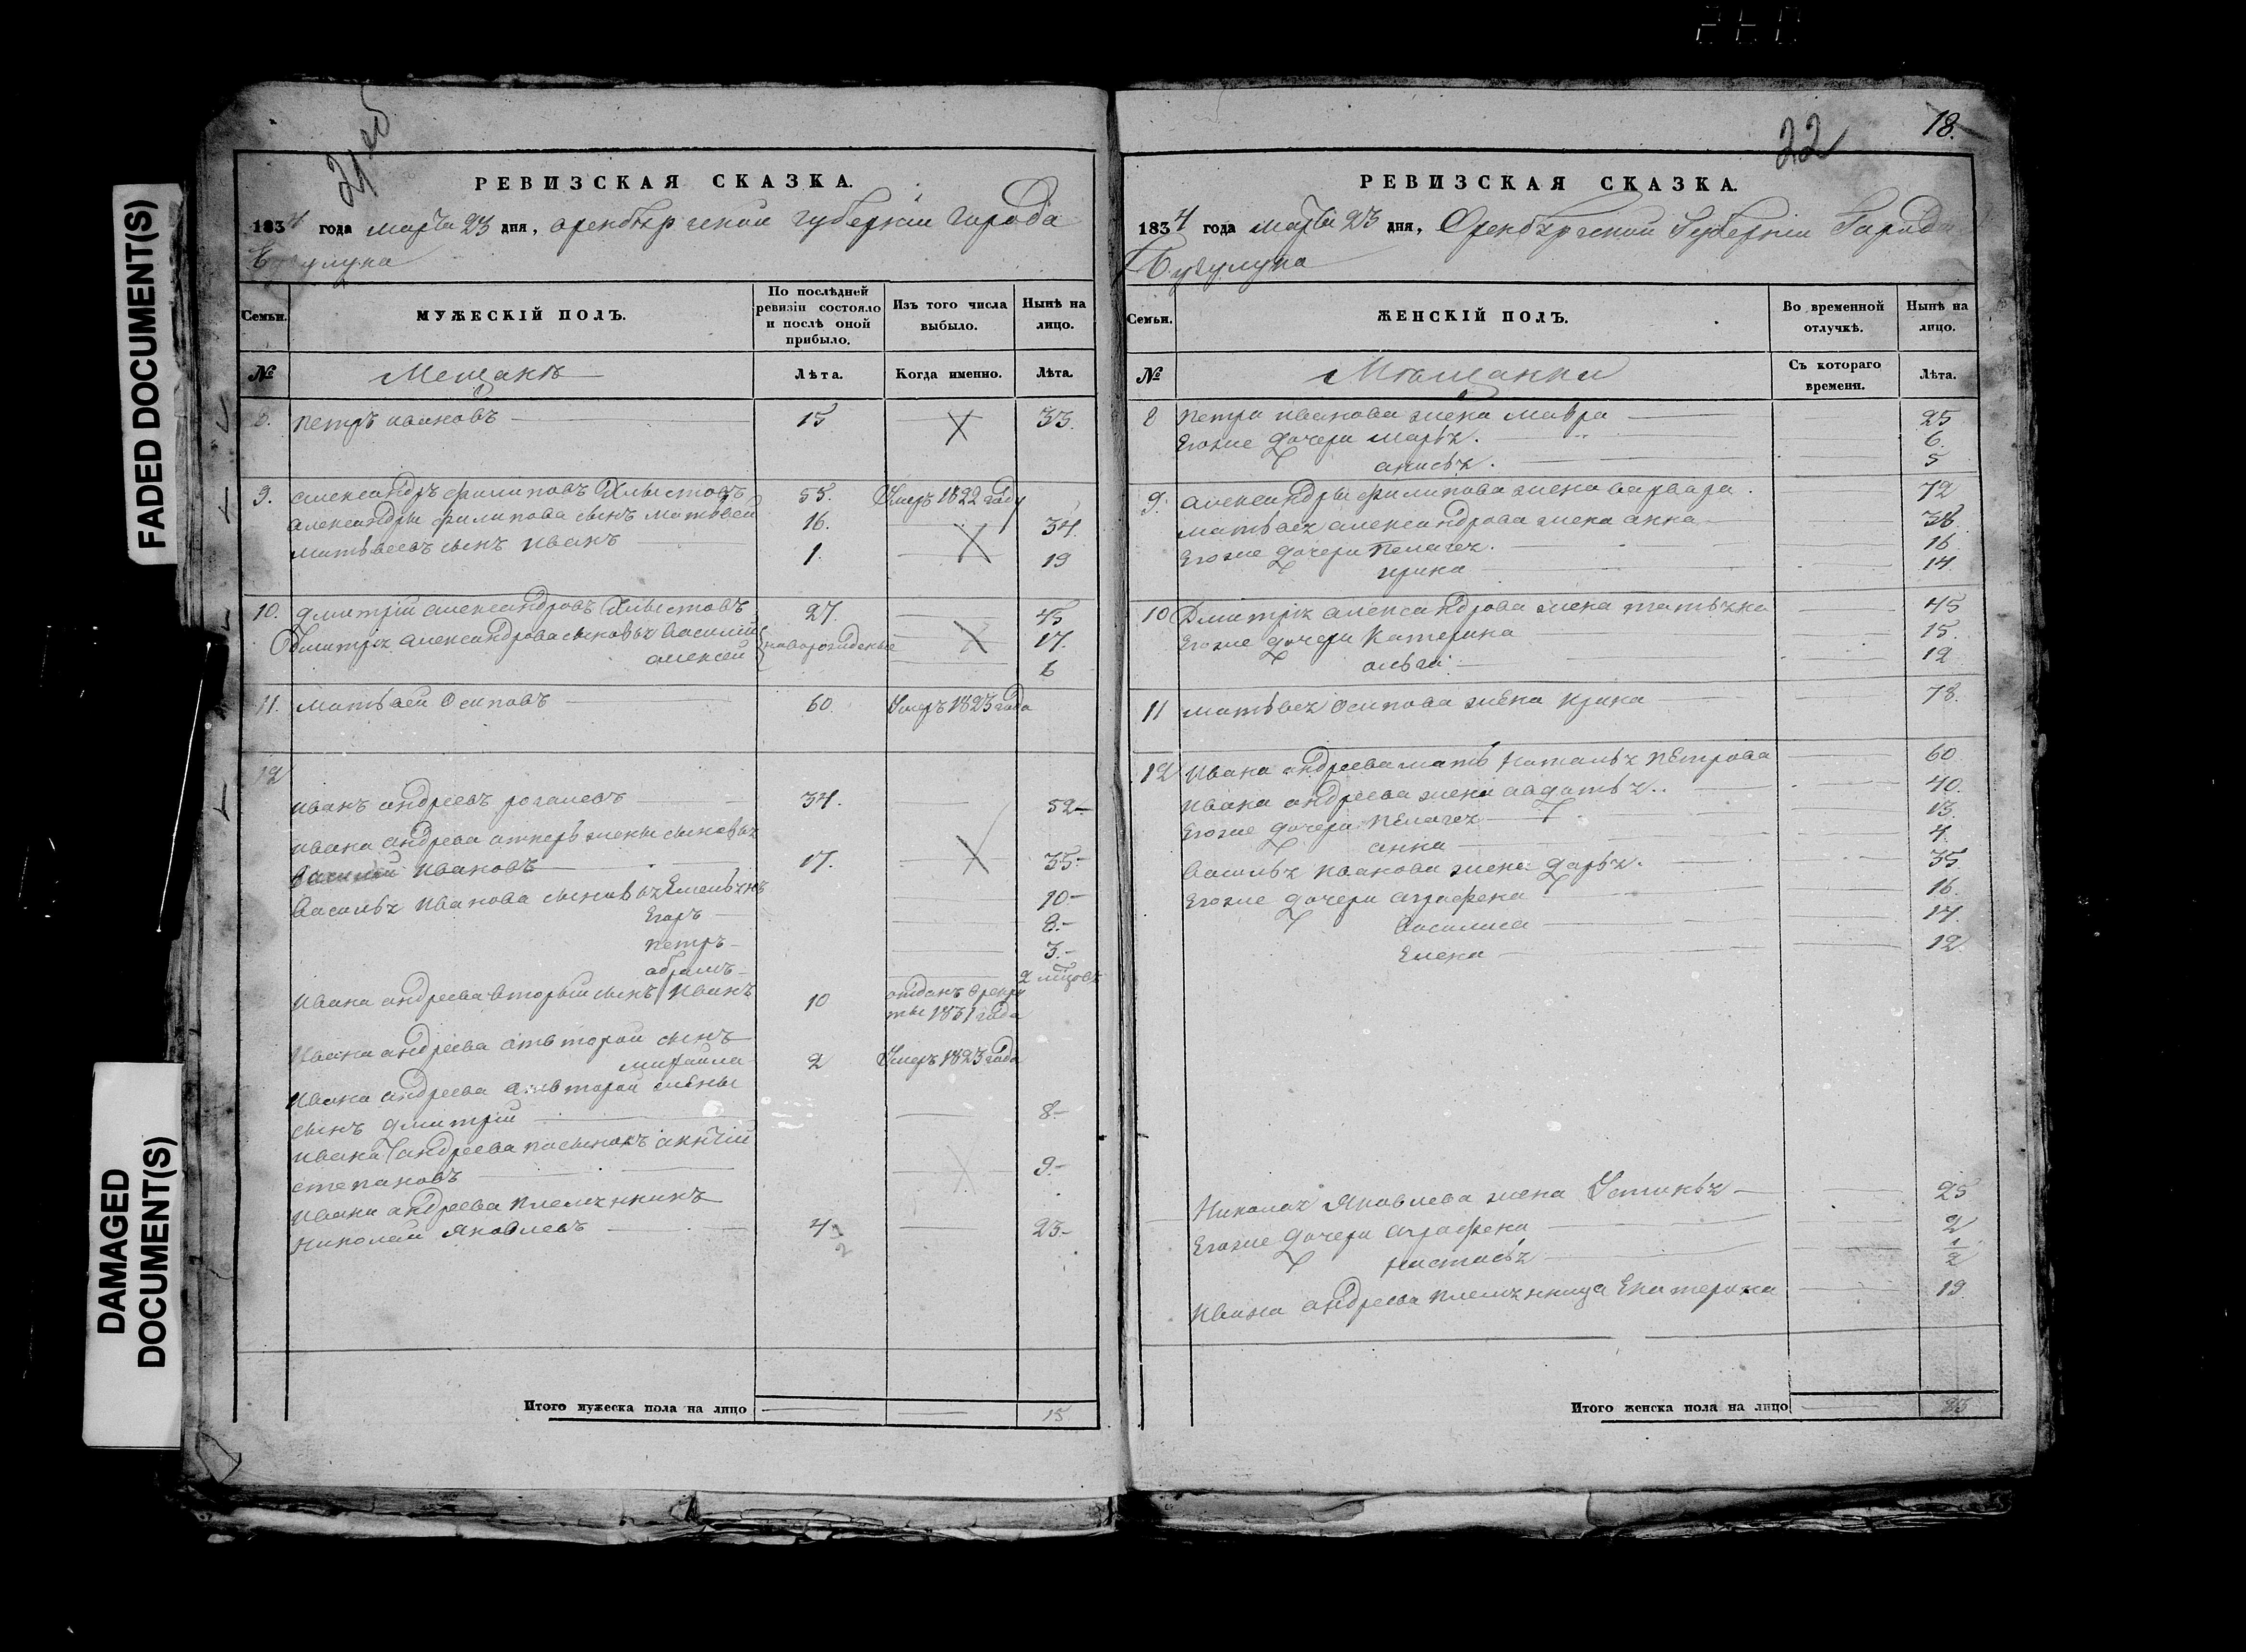 FADED DOCUMENT(S)
DAMAGED DOCUMENT(S)
21 об
РЕВИЗСКАЯ СКАЗКА.
1834 года марта 23 дня, оренбургской губернии города
Бугулука
Семьи.
МУЖЕСКІЙ ПОЛЪ.
По послѣдней ревизіи состояло и послѣ оной прибыло.
Изъ того числа выбыло.
Нынѣ на лицо.
№
Мещанъ
Лѣта.
Когда именно.
Лѣта.
8. петръ ивановъ 15 33.
9. александръ филиповъ Хлыстовъ 55. Умеръ 1822 году
александры филипова сынъ матвеи 16. 34.
матвеевъ сынъ иванъ 1. 19
10. дмитріи александровъ Хлыстовъ 27. 45
Дмитрія александрова сыновья василіи новорожденые 17.
алексеи 6
11. матвеи Осиповъ 60. Умеръ 1823 года
12
иванъ андреевъ рогалевъ 34. 52
ивана андрева отперв жены сыновья
василеи ивановъ 17. 35
василья иванова сыновья Емельянъ 10
Егоръ 8
петръ 3
абрамъ 2 мцовъ
ивана андреева вторыи сынъ иванъ 10 отданъ врекру
ты 1831 года
ивана андреева отвторои сынъ
михаила 2 Умеръ 1823 года
ивана андреева отвторои жены
сынъ дмитріи 8
ивана андреева пасынокъ
степановъ 9
ивана андреева племянникъ
николаи яковлевъ 4 23
Итого мужеска пола на лицо 15
22
18.
РЕВИЗСКАЯ СКАЗКА.
1834 года марта 23 дня, Оренбургскои Губерніи Города
Бугулука
Семьи.
ЖЕНСКІЙ ПОЛЪ.
Во временной отлучкѣ.
Нынѣ на лицо.
№
Мещанки
Съ котораго времени.
Лѣта.
8 петра иванова жена мавра 25
Егоже дочери марья. 6.
анисья. 5
9. александры филипова жена варвара. 72
матвея александрова жена анна 38
Егоже дочери пелагея. 16
ирина 14
10 Дмитрія александрова жена татьяна 45
Егоже дочери Катерина 15.
ольга 12
11 матвея осипова жена ирина 78.
12 ивана андреева мать наталья петрова 60
ивана андреева жена авдотья.. 40.
Егоже дочери пелагея 13
анна 4.
василья иванова жена дарья. 35
Егоже дочери аграфена 16.
василиса 14.
Елена 12
Николая Яковлева жена Устинья 25
Егоже дочери аграфена 2
настасья 1/2
ивана андреева племянница Екатерина 19.
Итого женска пола на лицо